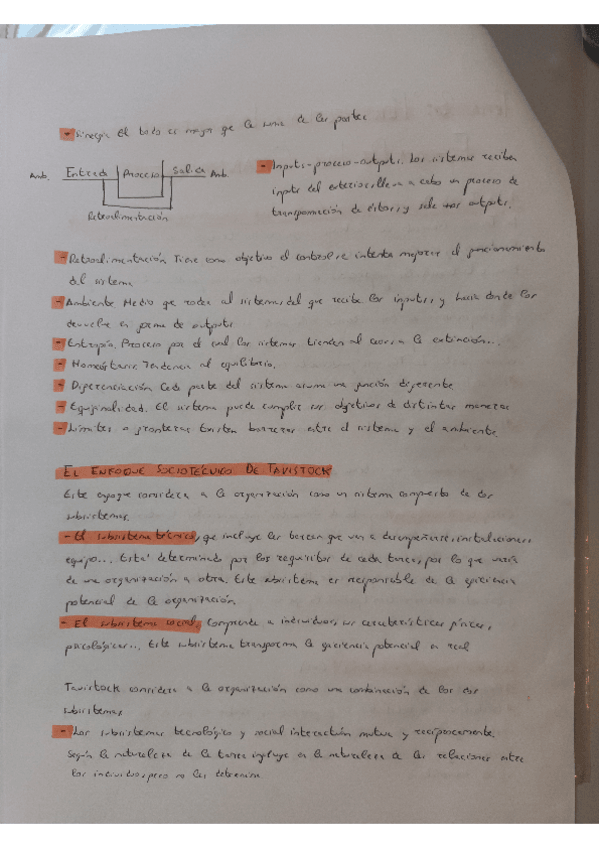 - Sinergia El todo es mayor que la suma de las partes
Amb. Entrada Proceso Salida Amb.
Retroalimentación
- Inputs-proceso-outputs. Los sistemas reciben
inputs del exterior, llevan a cabo un proceso de
transformación de éstos, y sale unos outputs.
- Retroalimentación Tiene como objetivo el control, se intenta mejorar el funcionamiento
del sistema
- Ambiente Medio que rodea al sistema, del que recibe los inputs, y hacia donde los
devuelve en forma de outputs.
- Entropía. Proceso por el cual los sistemas tienden al caos, a la extinción...
- Homeóstasis. Tendencia al equilibrio.
- Diferenciación Cada parte del sistema asume una función diferente
- Equifinalidad. El sistema puede cumplir sus objetivos de distintas maneras
- Límites o fronteras Existen barreras entre el sistema y el ambiente.
EL ENFOQUE SOCIOTÉCNICO DE TAVISTOCK
Este enfoque considera a la organización como un sistema compuesto de dos
subsistemas.
- El subsistema técnico, que incluye las tareas que van a desempeñarse, instalaciones,
equipo... Está determinado por los requisitos de cada tarea, por lo que varía
de una organización a otra. Este subsistema es responsable de la eficiencia
potencial de la organización.
- El subsistema social, comprende a individuos, sus características físicas,
psicológicas... Este subsistema transforma la eficiencia potencial en real
Tavistock considera a la organización como una combinación de los dos
subsistemas,
- Los subsistemas tecnológico y social interactúan mutua y recíprocamente.
Según la naturaleza de la tarea influye en la naturaleza de las relaciones entre
los individuos, pero no las determina.